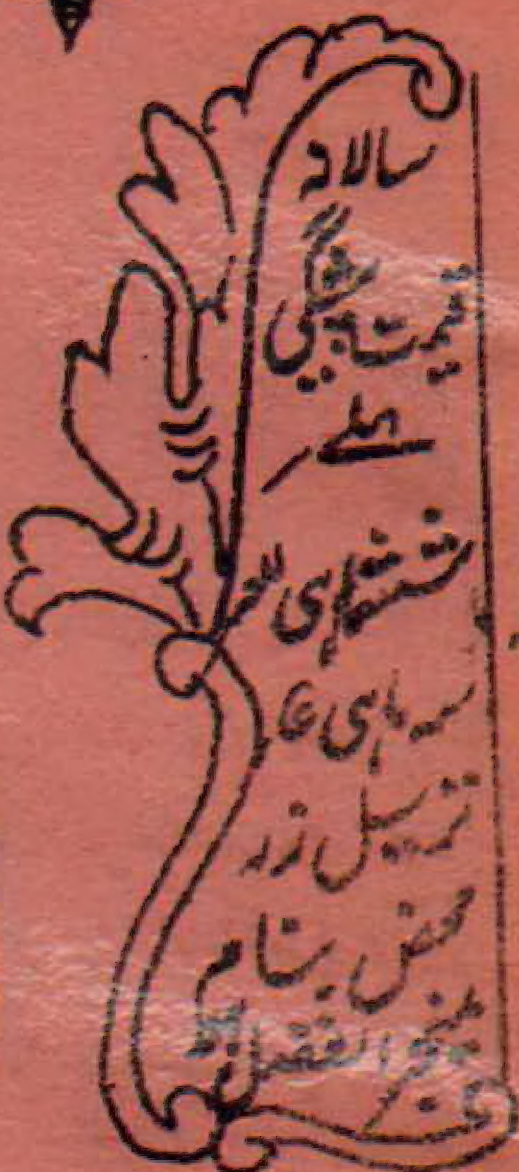 سالانہ
قیمت پیشگی
ششماہی للعہ
سہ ماہی
ترسیل زر
محض بنام
مینجر الفضل
ہو